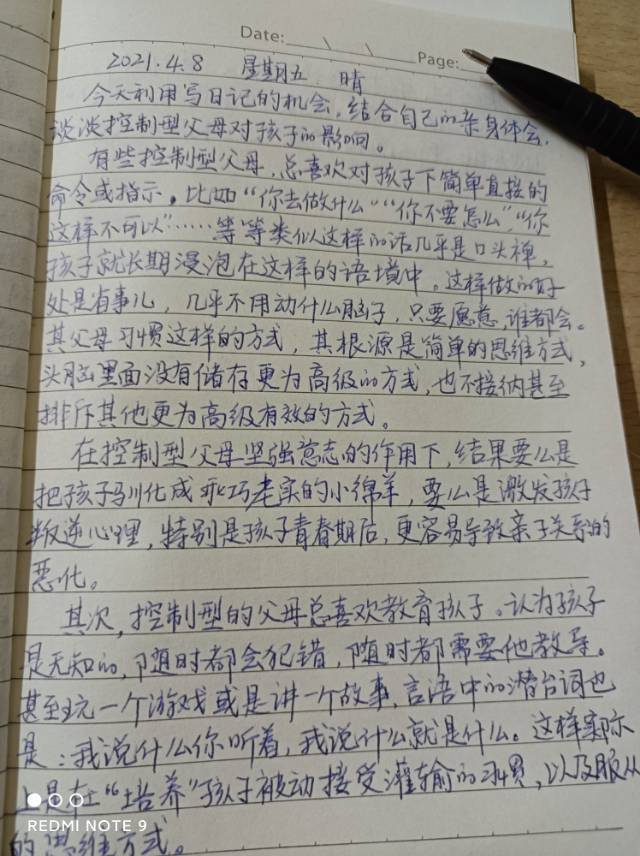 Date:
Page:
2021.4.8 星期五 晴
今天利用写日记的机会,结合自己的亲身体会,
谈谈控制型父母对孩子的影响。
有些控制型父母,总喜欢对孩子下简单直接的
命令或指示,比如“你去做什么”“你不要怎么”“你
这样不可以”……等等类似这样的话几乎是口头禅,
孩子就长期浸泡在这样的语境中。这样做的好
处是省事儿,几乎不用动什么脑子,只要愿意,谁都会。
其父母习惯这样的方式,其根源是简单的思维方式,
头脑里面没有储存更为高级的方式,也不接纳甚至
排斥其他更为高级有效的方式。
在控制型父母坚强意志的作用下,结果要么是
把孩子驯化成乖巧老实的小绵羊,要么是激发孩子
叛逆心理,特别是孩子青春期后,更容易导致亲子关系的
恶化。
其次,控制型的父母总喜欢教育孩子。认为孩子
是无知的,随时都会犯错,随时都需要他教导。
甚至玩一个游戏或是讲一个故事,言语中的潜台词也
是:我说什么你听着,我说什么就是什么。这样实际
上是在“培养”孩子被动接受灌输的习惯,以及服从
的思维方式。
REDMI NOTE 9